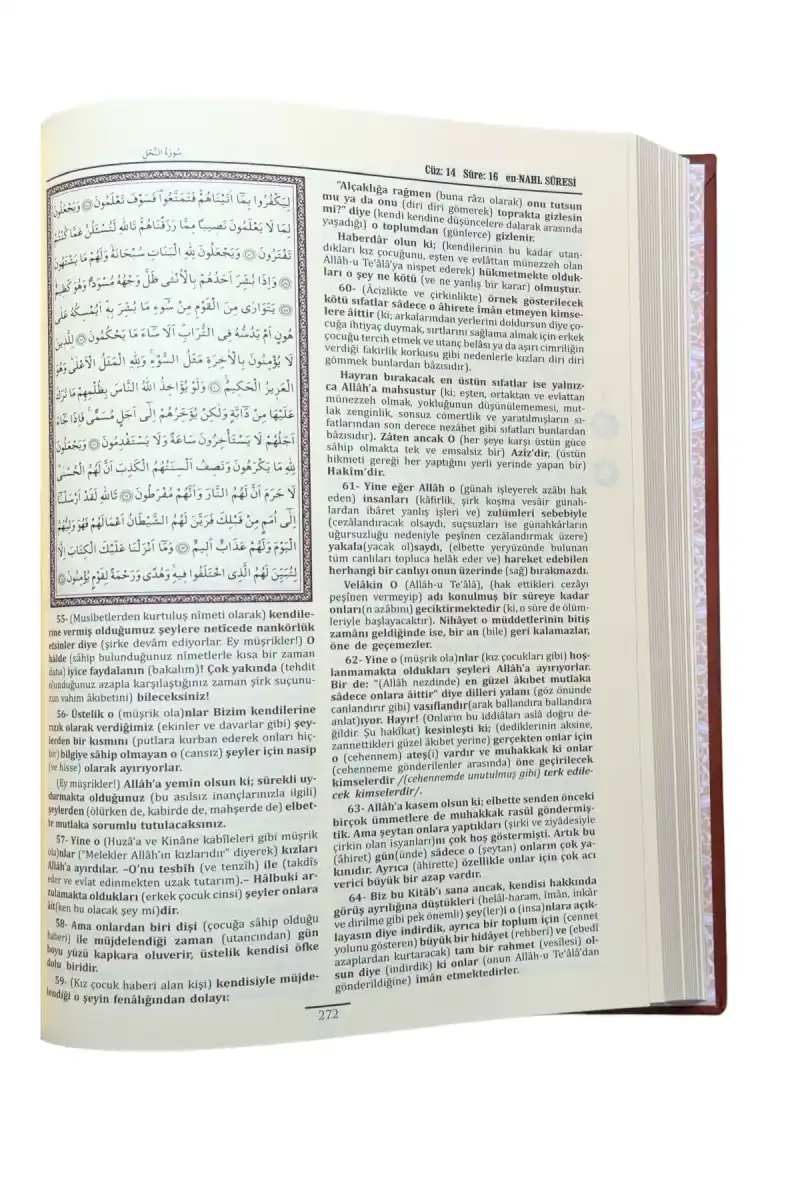 سُورَةُ النَّحْلِ
Cüz: 14 Sûre: 16 en-NAHL SÛRESİ
لِيَكْفُرُوا بِمَا اٰتَيْنَاهُمْ فَتَمَتَّعُوا فَسَوْفَ تَعْلَمُونَ ۝ وَيَجْعَلُونَ
لِمَا لَا يَعْلَمُونَ نَصِيبًا مِمَّا رَزَقْنَاهُمْ تَاللّٰهِ لَتُسْـَٔلُنَّ عَمَّا كُنْتُمْ
تَفْتَرُونَ ۝ وَيَجْعَلُونَ لِلّٰهِ الْبَنَاتِ سُبْحَانَهُ وَلَهُمْ مَا يَشْتَهُونَ
۝ وَاِذَا بُشِّرَ اَحَدُهُمْ بِالْاُنْثٰى ظَلَّ وَجْهُهُ مُسْوَدًّا وَهُوَ كَظِيمٌ
۝ يَتَوَارٰى مِنَ الْقَوْمِ مِنْ سُوءِ مَا بُشِّرَ بِهِ اَيُمْسِكُهُ عَلٰى
هُونٍ اَمْ يَدُسُّهُ فِى التُّرَابِ اَلَا سَاءَ مَا يَحْكُمُونَ ۝ لِلَّذِينَ
لَا يُؤْمِنُونَ بِالْاٰخِرَةِ مَثَلُ السَّوْءِ وَلِلّٰهِ الْمَثَلُ الْاَعْلٰى وَهُوَ
الْعَزِيزُ الْحَكِيمُ ۝ وَلَوْ يُؤَاخِذُ اللّٰهُ النَّاسَ بِظُلْمِهِمْ مَا تَرَكَ
عَلَيْهَا مِنْ دَابَّةٍ وَلٰكِنْ يُؤَخِّرُهُمْ اِلٰى اَجَلٍ مُسَمًّى فَاِذَا جَاءَ
اَجَلُهُمْ لَا يَسْتَأْخِرُونَ سَاعَةً وَلَا يَسْتَقْدِمُونَ ۝ وَيَجْعَلُونَ
لِلّٰهِ مَا يَكْرَهُونَ وَتَصِفُ اَلْسِنَتُهُمُ الْكَذِبَ اَنَّ لَهُمُ الْحُسْنٰى
لَا جَرَمَ اَنَّ لَهُمُ النَّارَ وَاَنَّهُمْ مُفْرَطُونَ ۝ تَاللّٰهِ لَقَدْ اَرْسَلْنَا
اِلٰى اُمَمٍ مِنْ قَبْلِكَ فَزَيَّنَ لَهُمُ الشَّيْطَانُ اَعْمَالَهُمْ فَهُوَ وَلِيُّهُمُ
الْيَوْمَ وَلَهُمْ عَذَابٌ اَلِيمٌ ۝ وَمَا اَنْزَلْنَا عَلَيْكَ الْكِتَابَ اِلَّا
لِتُبَيِّنَ لَهُمُ الَّذِى اخْتَلَفُوا فِيهِ وَهُدًى وَرَحْمَةً لِقَوْمٍ يُؤْمِنُونَ ۝
55- (Musîbetlerden kurtuluş nîmeti olarak) kendile-
rine vermiş olduğumuz şeylere netîcede nankörlük
etsinler diye (şirke devâm ediyorlar. Ey müşrikler!) O
hâlde (sâhip bulunduğunuz nîmetlerle kısa bir zaman
daha) iyice faydalanın (bakalım)! Çok yakında (tehdit
olunduğunuz azapla karşılaştığınız zaman şirk suçunu-
zun vahim âkıbetini) bileceksiniz!
56- Üstelik o (müşrik ola)nlar Bizim kendilerine
rızık olarak verdiğimiz (ekinler ve davarlar gibi) şey-
lerden bir kısmını (putlara kurban ederek onları hiç-
bir) bilgiye sâhip olmayan o (cansız) şeyler için nasip
(ve hisse) olarak ayırıyorlar.
(Ey müşrikler!) Allâh'a yemîn olsun ki; sürekli uy-
durmakta olduğunuz (bu asılsız inançlarınızla ilgili)
şeylerden (ölürken de, kabirde de, mahşerde de) elbet-
te mutlaka sorumlu tutulacaksınız.
57- Yine o (Huzâ'a ve Kinâne kabîleleri gibi müşrik
ola)nlar ("Melekler Allâh'ın kızlarıdır" diyerek) kızları
Allâh'a ayırdılar. –O'nu tesbîh (ve tenzîh) ile (takdîs
eder ve evlat edinmekten uzak tutarım).– Hâlbuki ar-
zulamakta oldukları (erkek çocuk cinsi) şeyler onlara
âit(ken bu olacak şey mi)dir.
58- Ama onlardan biri dişi (çocuğa sâhip olduğu
haberi) ile müjdelendiği zaman (utancından) gün
boyu yüzü kapkara oluverir, üstelik kendisi öfke
dolu biridir.
59- (Kız çocuk haberi alan kişi) kendisiyle müjde-
lendiği o şeyin fenâlığından dolayı:
"Alçaklığa rağmen (buna râzı olarak) onu tutsun
mu ya da onu (diri diri gömerek) toprakta gizlesin
mi?" diye (kendi kendine düşüncelere dalarak arasında
yaşadığı) o toplumdan (günlerce) gizlenir.
Haberdâr olun ki; (kendilerinin bu kadar utan-
dıkları kız çocuğunu, eşten ve evlâttan münezzeh olan
Allâh-u Te'âlâ'ya nispet ederek) hükmetmekte olduk-
ları o şey ne kötü (ve ne yanlış bir karar) olmuştur.
60- (Âcizlikte ve çirkinlikte) örnek gösterilecek
kötü sıfatlar sâdece o âhirete îmân etmeyen kimse-
lere âittir (ki; arkalarından yerlerini doldursun diye ço-
cuğa ihtiyaç duymak, sırtlarını sağlama almak için erkek
çocuğu tercih etmek ve utanç belâsı ya da aşırı cimriliğin
verdiği fakirlik korkusu gibi nedenlerle kızları diri diri
gömmek bunlardan bâzısıdır).
Hayran bırakacak en üstün sıfatlar ise yalnız-
ca Allâh'a mahsustur (ki; eşten, ortaktan ve evlattan
münezzeh olmak, yokluğunun düşünülememesi, mut-
lak zenginlik, sonsuz cömertlik ve yaratılmışların sı-
fatlarından son derece nezâhet gibi sıfatları bunlardan
bâzısıdır). Zâten ancak O (her şeye karşı üstün güce
sâhip olmakta tek ve emsalsiz bir) Azîz'dir, (üstün
hikmeti gereği her yaptığını yerli yerinde yapan bir)
Hakîm'dir.
61- Yine eğer Allâh o (günah işleyerek azâbı hak
eden) insanları (kâfirlik, şirk koşma vesâir günah-
lardan ibâret yanlış işleri ve) zulümleri sebebiyle
(cezâlandıracak olsaydı, suçsuzları ise günahkârların
uğursuzluğu nedeniyle peşînen cezâlandırmak üzere)
yakala(yacak ol)saydı, (elbette yeryüzünde bulunan
tüm canlıları topluca helâk eder ve) hareket edebilen
herhangi bir canlıyı onun üzerinde (sağ) bırakmazdı.
Velâkin O (Allâh-u Te'âlâ), (hak ettikleri cezâyı
peşînen vermeyip) adı konulmuş bir süreye kadar
onları(n azâbını) geciktirmektedir (ki, o süre de ölüm-
leriyle başlayacaktır). Nihâyet o müddetlerinin bitiş
zamânı geldiğinde ise, bir an (bile) geri kalamazlar,
öne de geçemezler.
62- Yine o (müşrik ola)nlar (kız çocukları gibi) hoş-
lanmamakta oldukları şeyleri Allâh'a ayırıyorlar.
Bir de: "(Allâh nezdinde) en güzel âkıbet mutlaka
sâdece onlara âittir" diye dilleri yalanı (göz önünde
canlandırır gibi) vasıflandır(arak ballandıra ballandıra
anlat)ıyor. Hayır! (Onların bu iddiâları aslâ doğru de-
ğildir. Şu hakîkat) kesinleşti ki; (dediklerinin aksine,
zannettikleri güzel âkıbet yerine) gerçekten onlar için
o (cehennem) ateş(i) vardır ve muhakkak ki onlar
(cehenneme gönderilenler arasında) öne geçirilecek
kimselerdir /(cehennemde unutulmuş gibi) terk edile-
cek kimselerdir/.
63- Allâh'a kasem olsun ki; elbette senden önceki
birçok ümmetlere de muhakkak rasûl göndermiş-
tik. Ama şeytan onlara yaptıkları (şirki ve ziyâdesiyle
çirkin olan isyanları)nı çok hoş göstermişti. Artık bu
(âhiret) gün(ünde) sâdece o (şeytan) onların çok ya-
kınıdır. Ayrıca (âhirette) özellikle onlar için çok acı
verici büyük bir azap vardır.
64- Biz bu Kitâb'ı sana ancak, kendisi hakkında
görüş ayrılığına düştükleri (helâl-haram, îmân, inkâr
ve dirilme gibi pek önemli) şey(ler)i o (insa)nlara açık-
layasın diye indirdik, ayrıca bir toplum için (cennet
yolunu gösteren) büyük bir hidâyet (rehberi) ve (ebedî
azaplardan kurtaracak) tam bir rahmet (vesîlesi) ol-
sun diye (indirdik) ki onlar (onun Allâh-u Te'âlâ'dan
gönderildiğine) îmân etmektedirler.
272